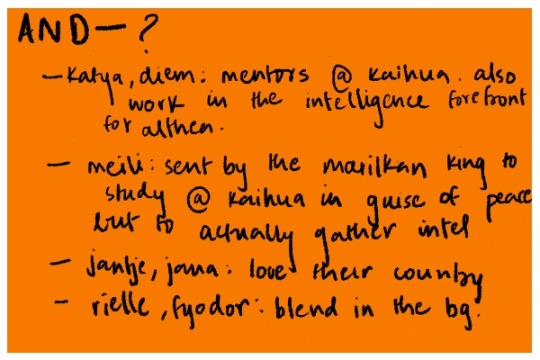 AND — ?
— katya, diem: mentors @ kaihua. also
work in the intelligence forefront
for althea.
— meili: sent by the marilkan king to
study @ kaihua in guise of peace
but to actually gather intel
— jantje, jana: love their country
— rielle, fyodor: blend in the bg.